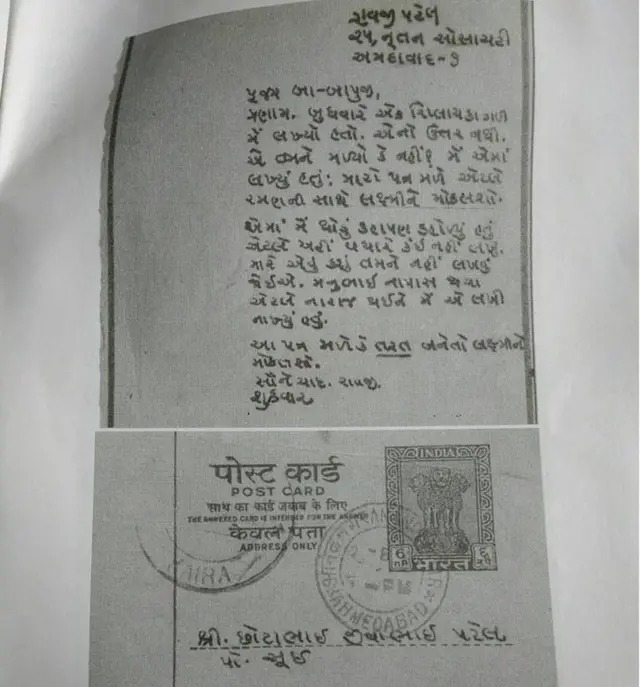 રાવજી પટેલ
૨૫, નૂતન સોસાયટી
અમદાવાદ-૭
પૂજ્ય બા-બાપુજી,
પ્રણામ. બુધવારે એક રિપ્લાયકાર્ડ
મેં લખ્યો હતો. એનો ઉત્તર નથી.
એ તમને મળ્યો કે નહીં? મેં એમાં
લખ્યું હતું: મારો પત્ર મળે એટલે
રમણની સાથે લક્ષ્મીને મોકલશો.
એમાં મેં થોડું ડહાપણ ડહોળ્યું હતું
એટલે અહીં વધારે કંઈ નહીં લખું.
મારે એવું કશું તમને નહીં લખવું
જોઈએ. મનુભાઈ નાપાસ થયા
એટલે નારાજ થઈને મેં એ લખી
નાખ્યું હતું.
આ પત્ર મળેકે તરત બનેતો લક્ષ્મીને
મોકલશો.
સૌને યાદ. રાવજી.
શુક્રવાર
पोस्ट कार्ड
POST CARD
साथ का कार्ड जवाब के लिए
THE ANNEXED CARD IS INTENDED FOR THE ANSWER
केवल पता
ADDRESS ONLY
INDIA
6 np
६
भारत
KAIRA
AHMEDABAD
શ્રી. છોટાભાઈ જીવાભાઈ પટેલ
પો. સૂઈ